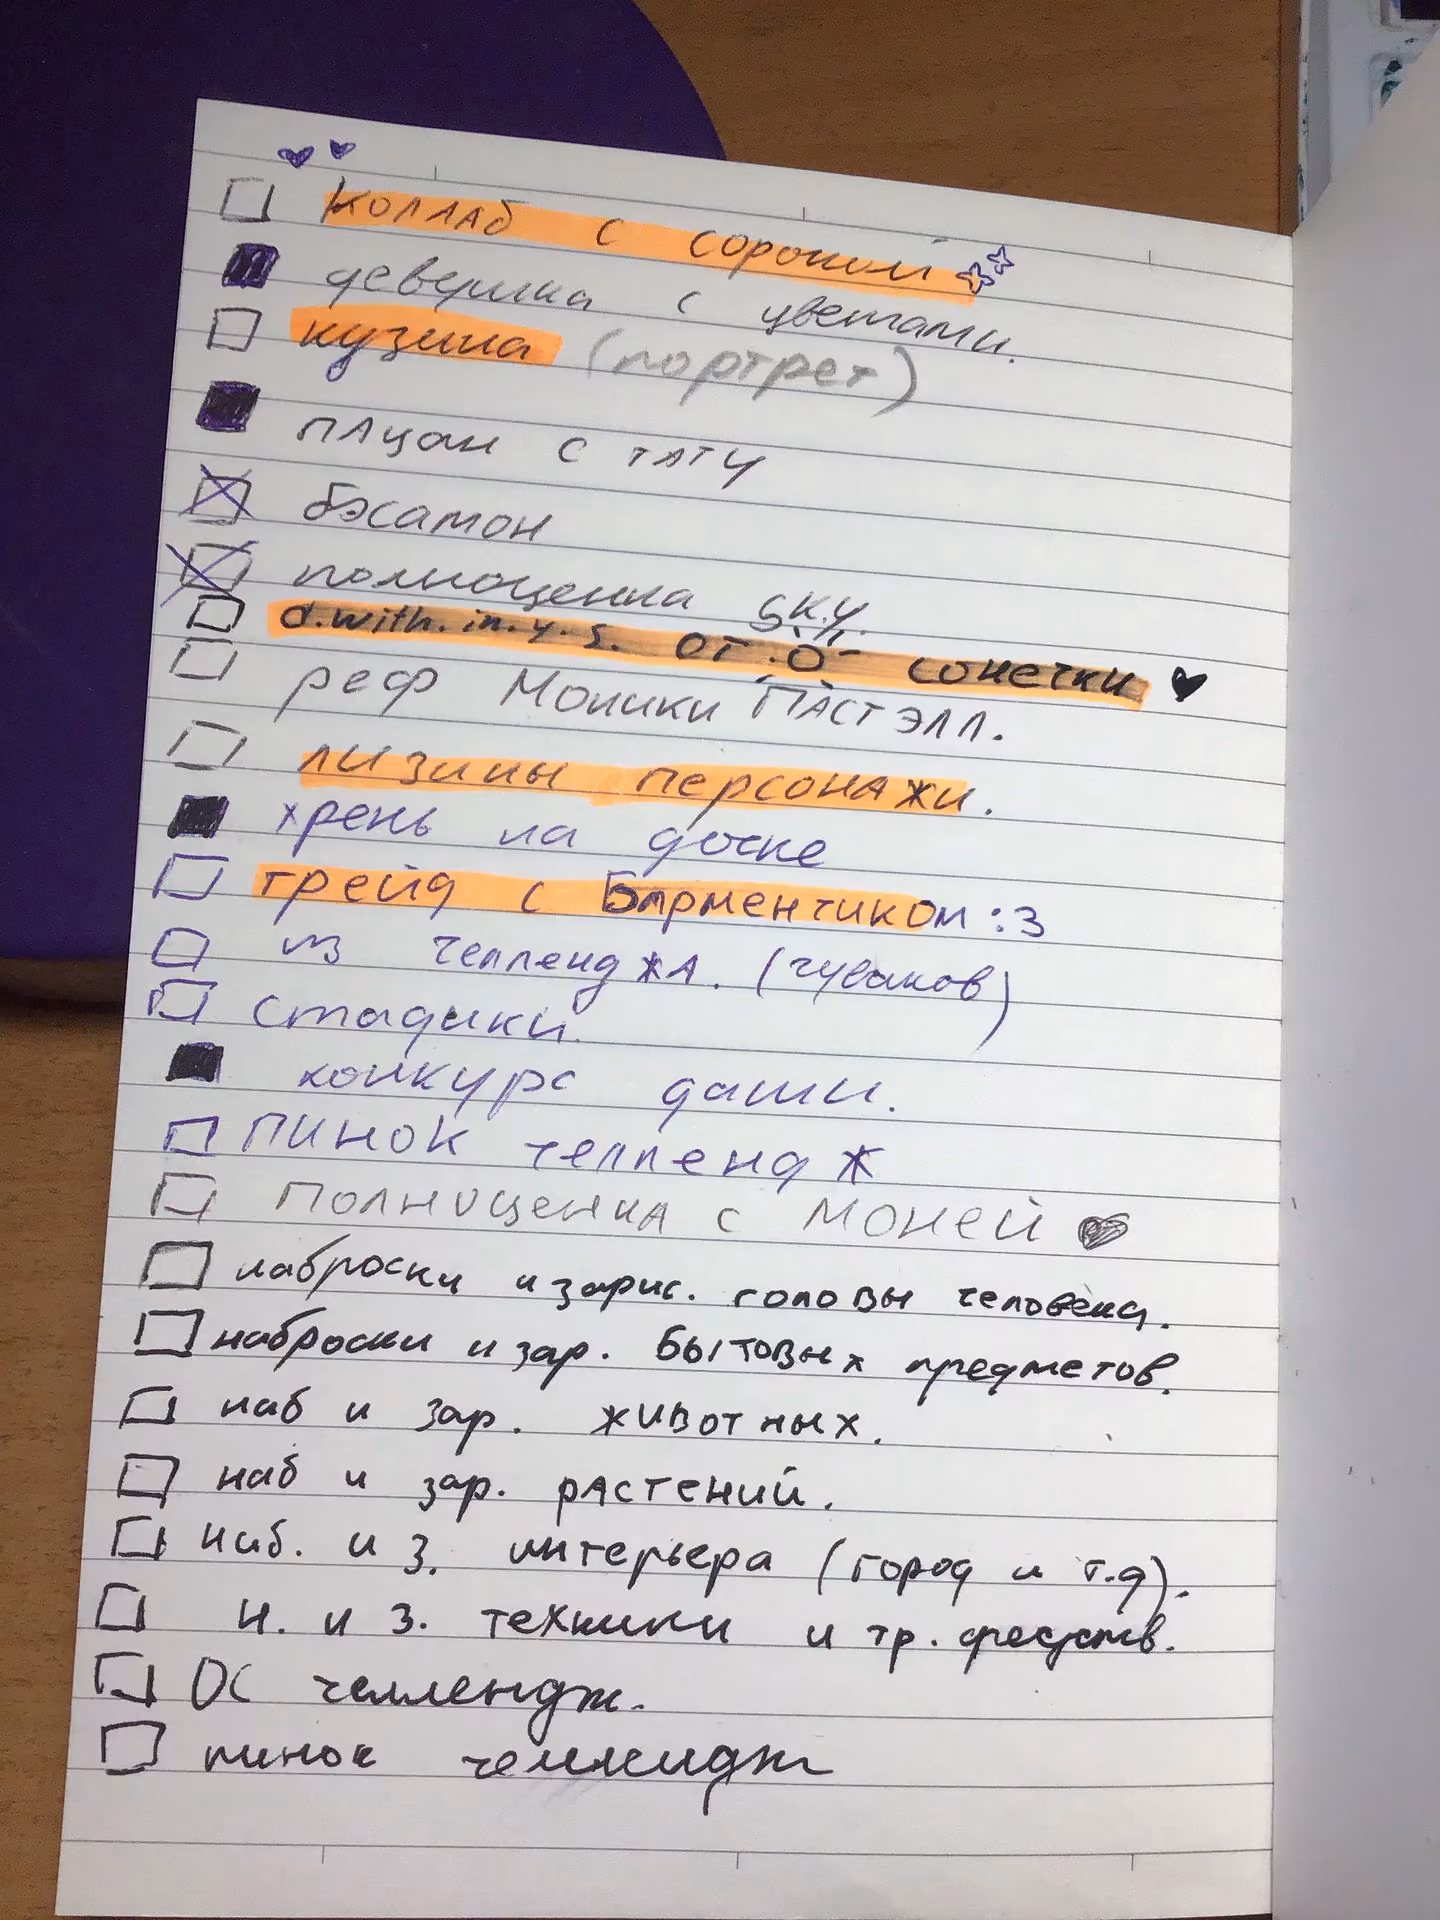 Коллаб с сорокой
девушка с цветами.
кузина (портрет)
пацан с тату
бэсамон
полноценка sky.
d.with.in.y.s. от :Ö сонечки
реф Моники Пастэлл.
лизины персонажи.
хрень на доске
трейд с Барменчиком :3
из челленджа. (чуваков)
стадики.
конкурс даши.
пинок челлендж
Полноценка с Моней
наброски и зарис. головы человека.
наброски и зар. бытовых предметов.
наб и зар. животных.
наб и зар. растений.
наб. и з. интерьера (город и т.д).
н. и з. техники и тр. средств.
ОС челлендж.
пинок челлендж